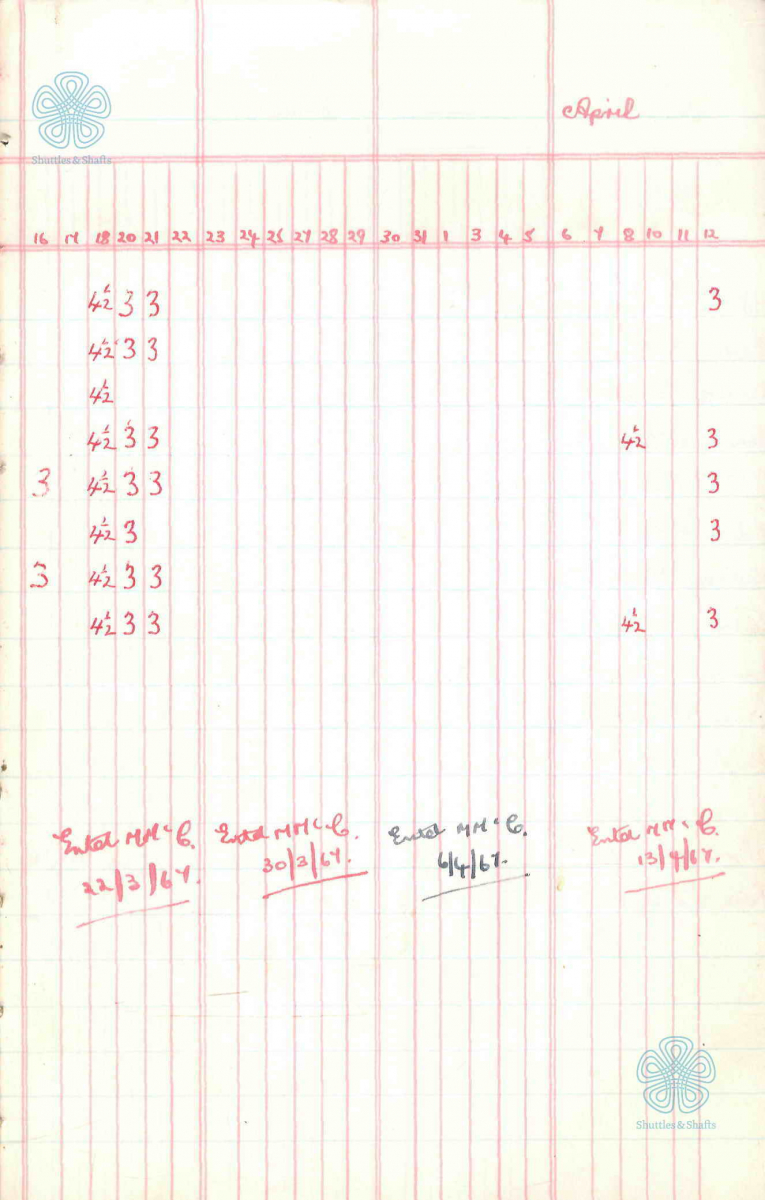 April
Shuttles & Shafts
16 17 18 20 21 22 23 24 25 27 28 29 30 31 1 3 4 5 6 7 8 10 11 12
4½ 3 3 3
4½ 3 3
4½
4½ 3 3 4½ 3
3 4½ 3 3 3
4½ 3 3
3 4½ 3 3
4½ 3 3 4½ 3
Entd MMcC. Entd MMcC. Entd MMcC. Entd MMcC.
22/3/67. 30/3/67. 6/4/67. 13/4/67.
Shuttles & Shafts